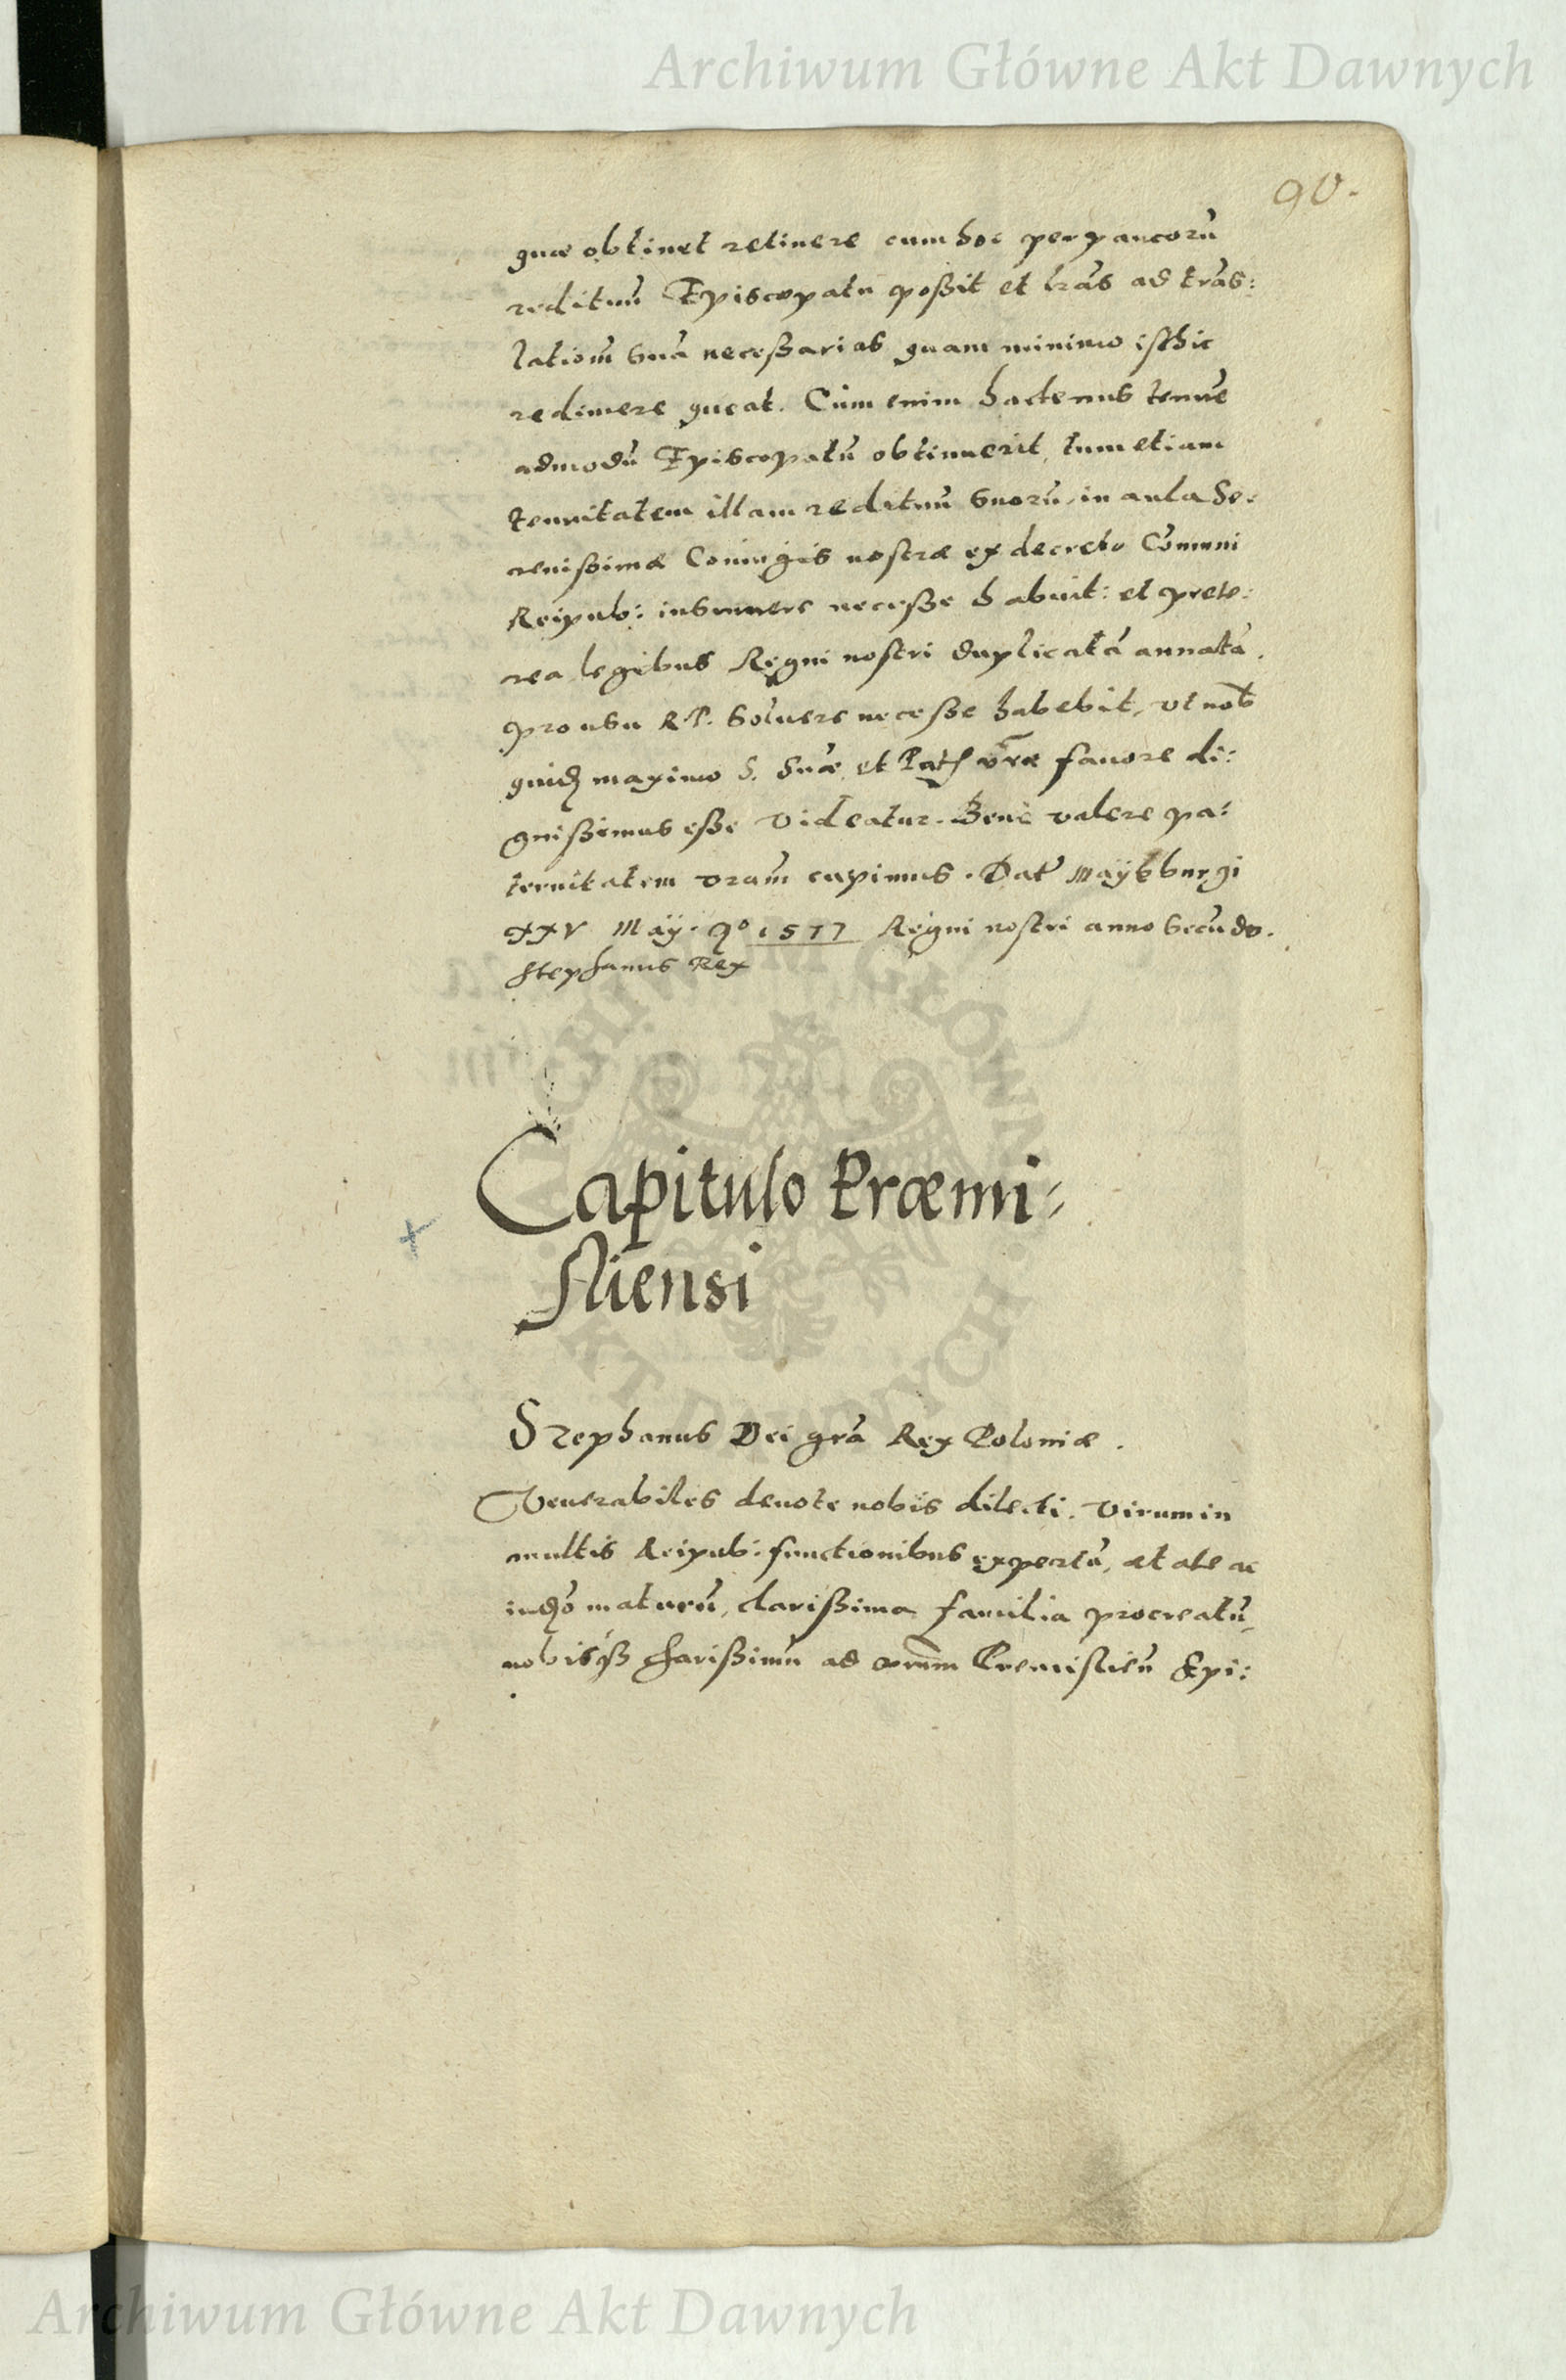 Archiwum Główne Akt Dawnych
90.
quæ obtinet retinere cum hoc perpaucorū
redituū Episcopatu poßit et lrās ad trās:
lationē suā neceßarias quam minimo isthic
redimere queat. Cùm enim hactenus tenuē
admodū Episcopatū obtinuerit, tum etiam
tenuitatem illam redituū suorū in aula Se:
renißimæ Coniugis nostræ ex decreto Cōmuni
Reipub: insumere neceße habuit: et prete:
rea legibus Regni nostri duplicatā annatā
pro usu RP. soluere neceße habebit, vt nob
quidē maximo S. Suæ et Patt vræ fauore di:
gnißimus eße videatur. Bene valere pa:
ternitatem vram cupimus. Dat Maÿbburgi
XXV Maÿ. Aº 1577 Regni nostri anno secūdo.
Stephanus Rex
Capitulo Præmi:
sliensi
Stephanus Dei grā Rex Poloniæ.
Venerabiles deuote nobis dilecti. Virum in
multis Reipub: functionibus expertū, ætate ac
iudō maturū, clarißima familia procreatū,
nobisqȝ charißimū ad vrum Premislieñ Epi:
ARCHIWUM GŁÓWNE
AKT DAWNYCH
Archiwum Główne Akt Dawnych